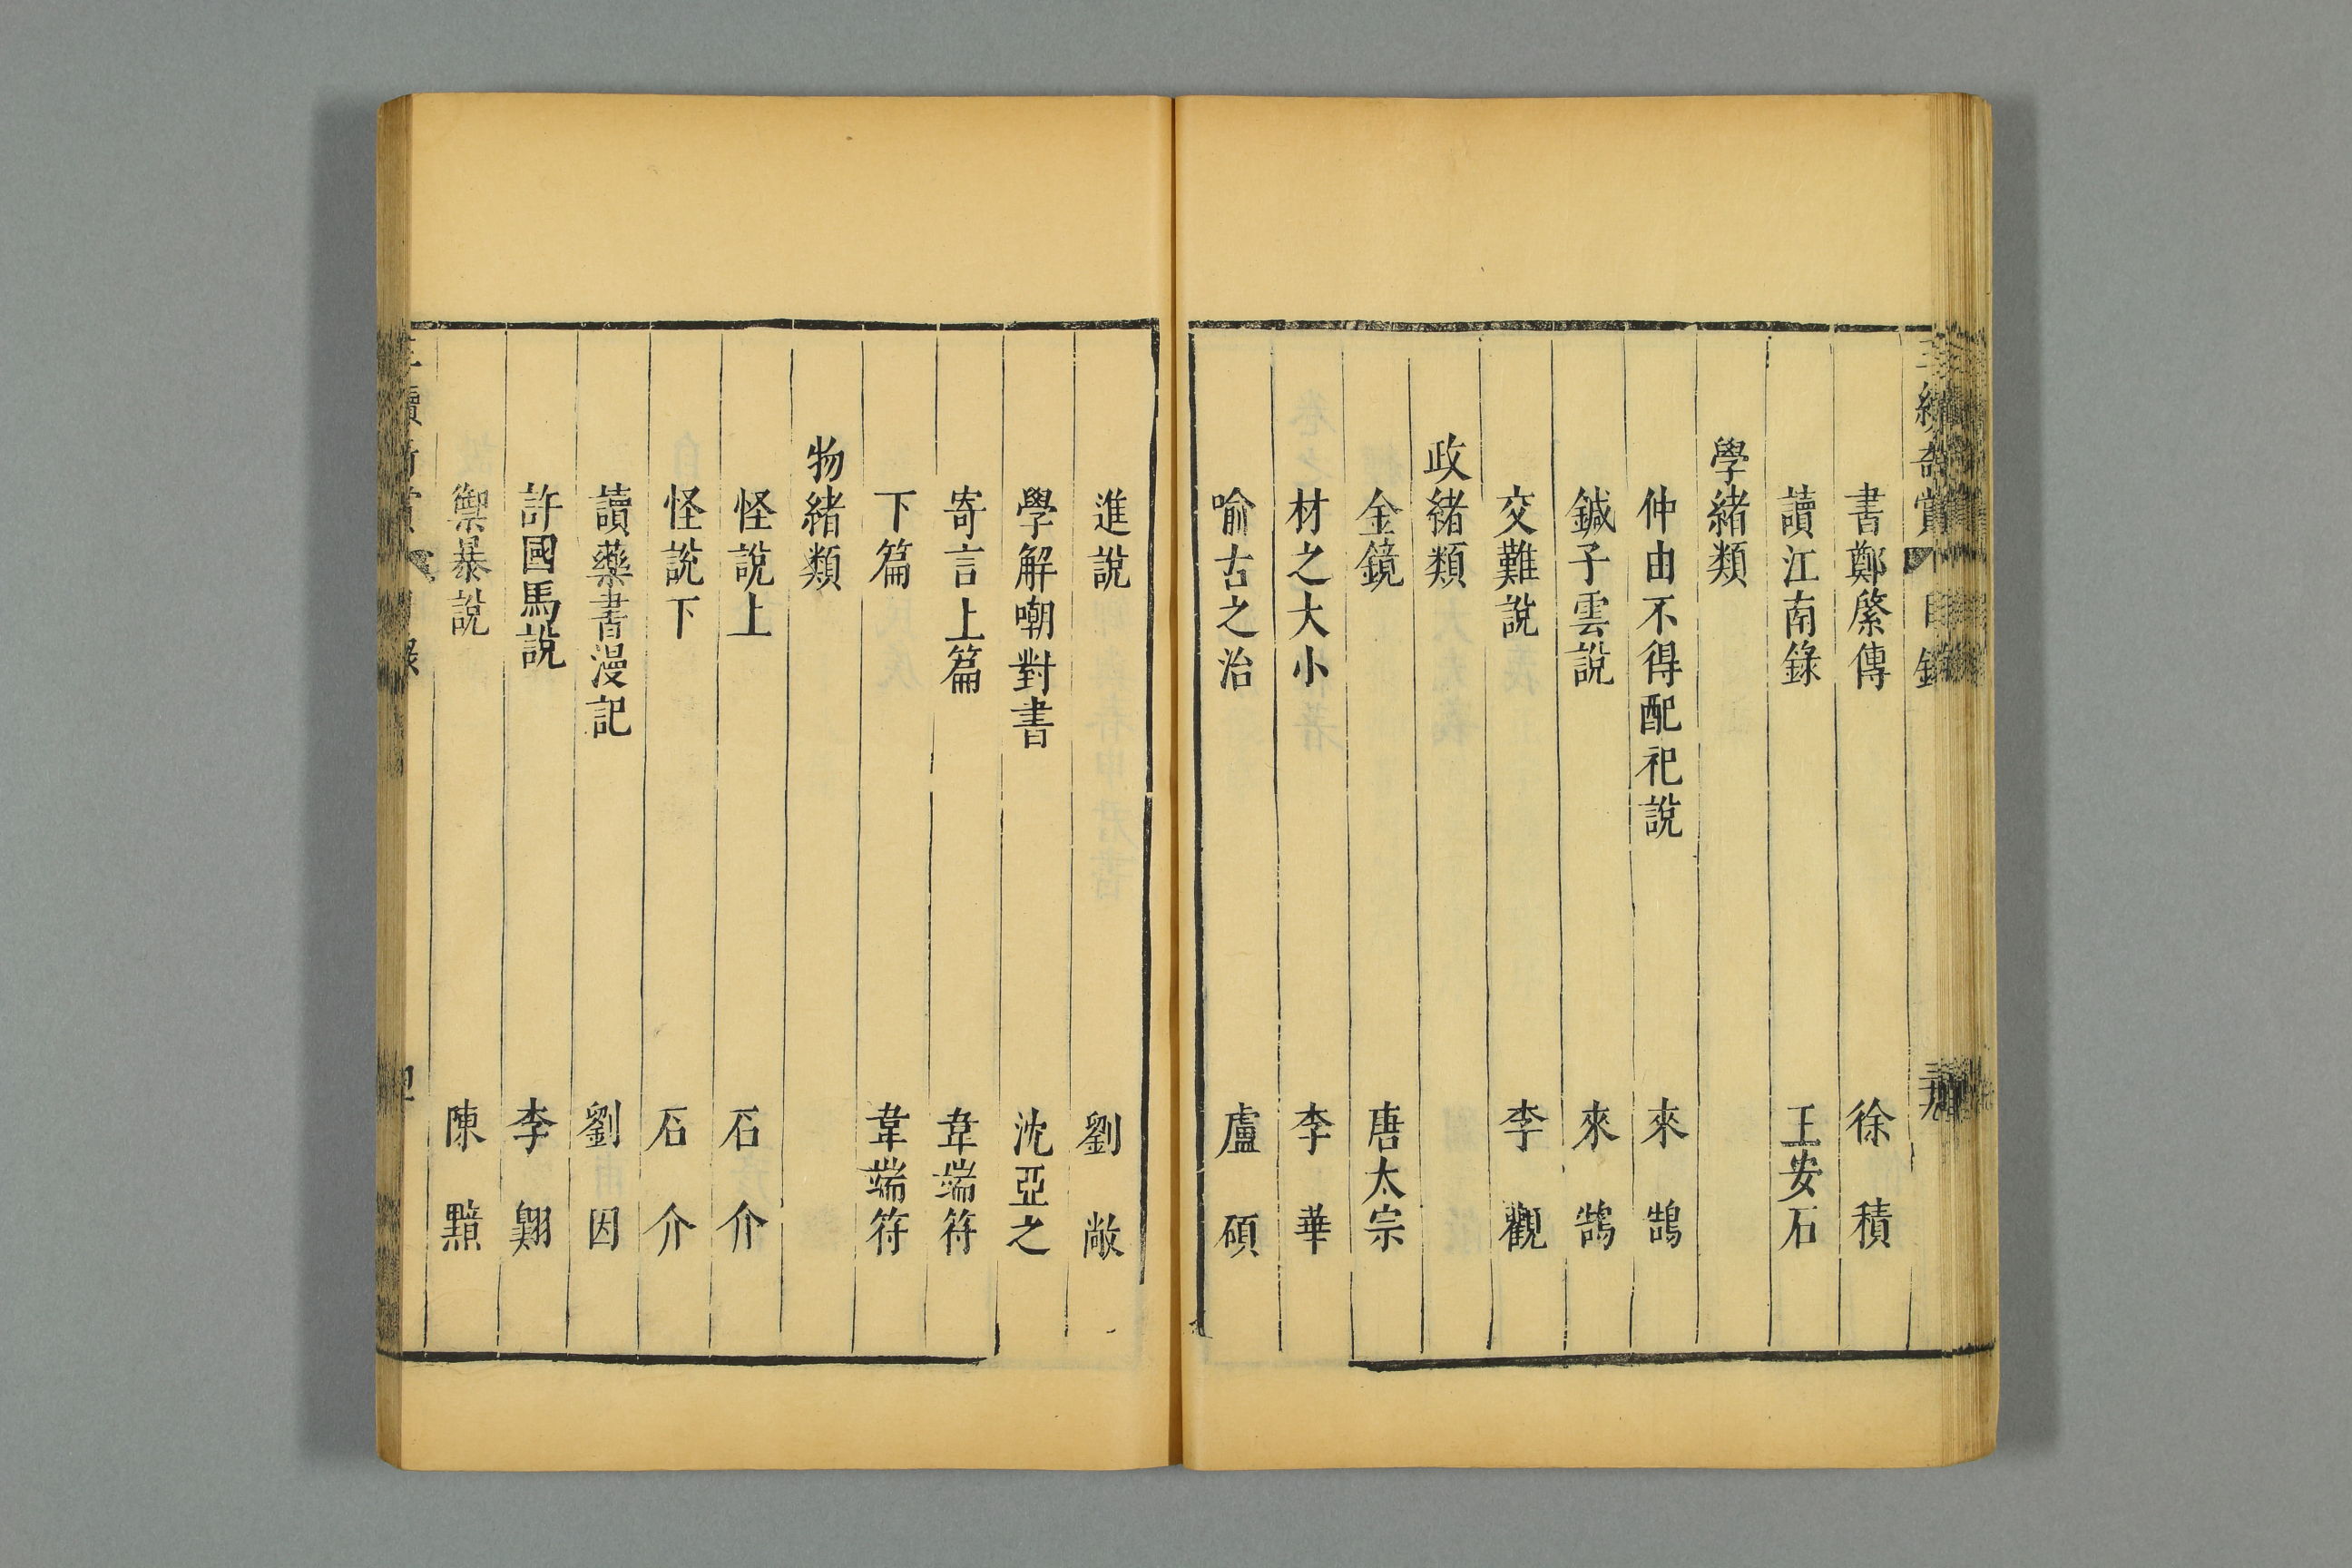 書鄭綮傳 徐積
讀江南錄 王安石
學緒類
仲由不得配祀說 來鵠
鍼子雲說 來鵠
交難說 李觀
政緒類
金鏡 唐太宗
材之大小 李華
喻古之治 盧碩
進說 劉敞
學解嘲對書 沈亞之
寄言上篇 韋端符
下篇 韋端符
物緒類
怪說上 石介
怪說下 石介
讀藥書漫記 劉因
許國馬說 李翺
禦暴說 陳黯